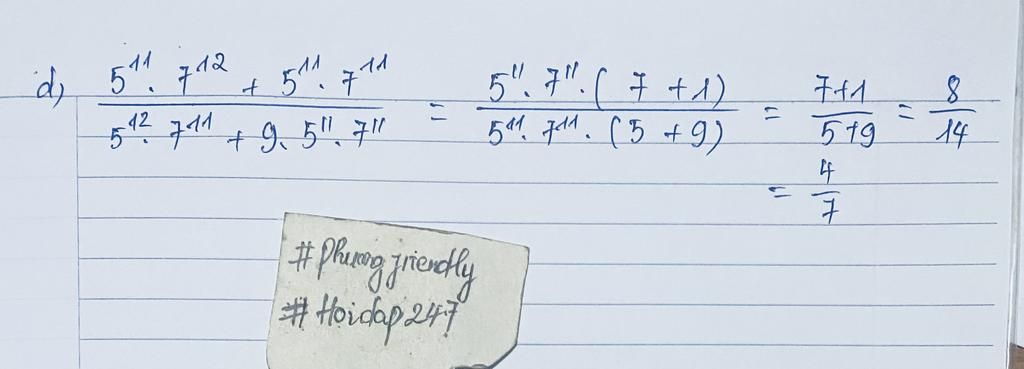 d, (5^11 . 7^12 + 5^11 . 7^11) / (5^12 . 7^11 + 9 . 5^11 . 7^11) = (5^11 . 7^11 . (7 + 1)) / (5^11 . 7^11 . (5 + 9)) = (7+1) / (5+9) = 8/14
= 4/7
#Phuong friendly
#Hoidap247